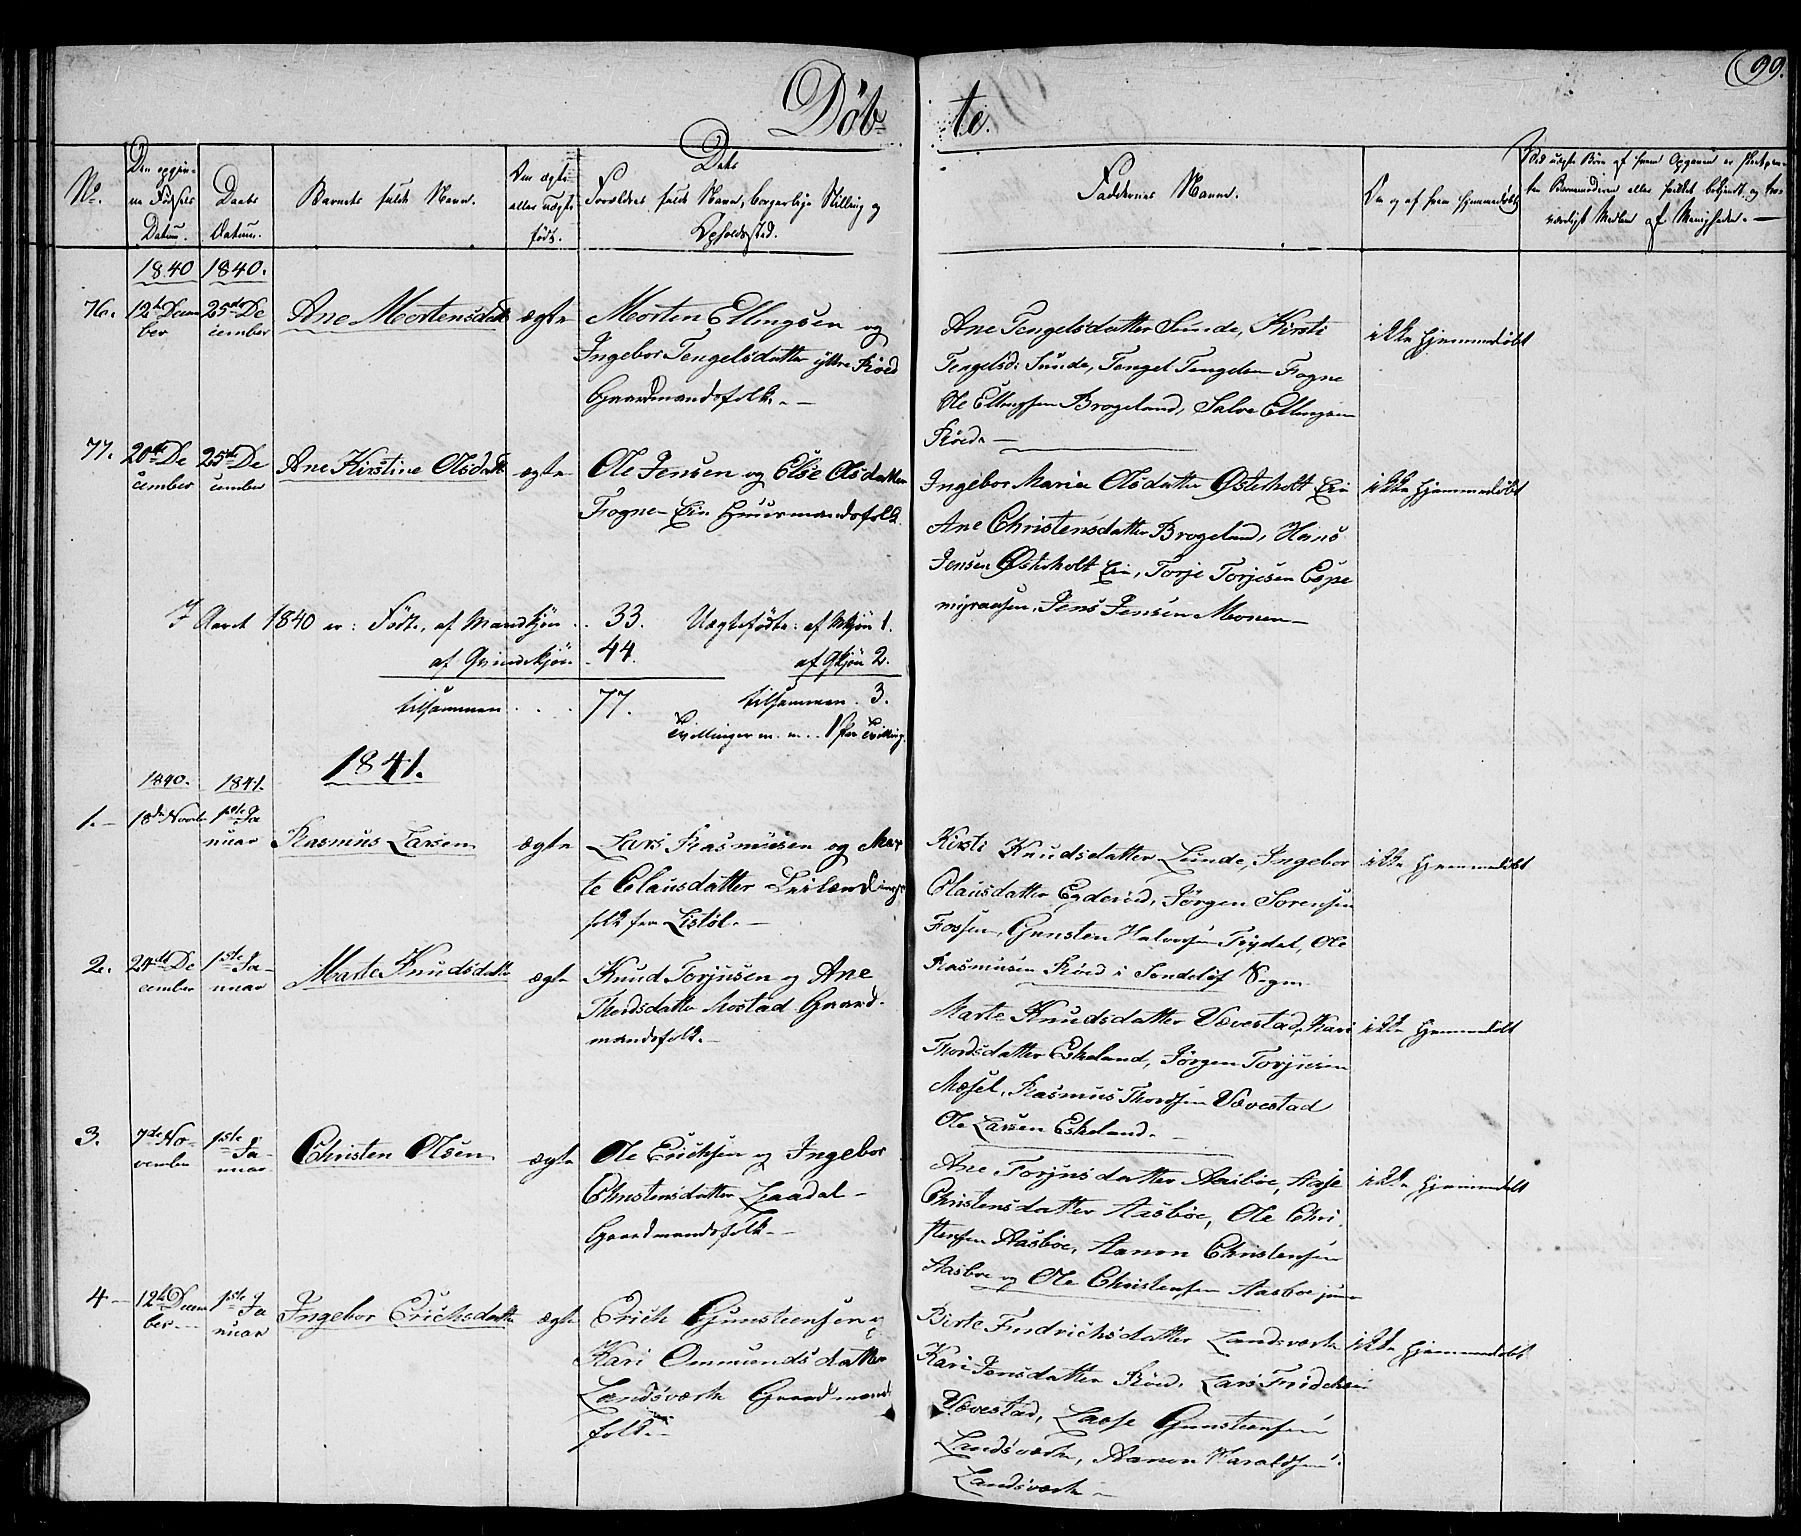 Døb-
te.
99.
No.
Den opgivne Fødsels Datum.
Daabs Datum.
Barnets fulde Navn.
Om ægte eller uægte født.
Dets Forældres fulde Navn, borgerlige Stilling og Opholdssted.
Faddernes Navne.
Om og af hvem hjemmedøbt
1840 1840.
76. 12te Decem 25de De Ane Mortensdatt ægte Morten Ellingsen og
ber cember
Ingebor Tengelsdatter ytre Røed
Gaardmandsfolk. —
Ane Tengelsdatter Sunde, Kirsti
Tengelsd: Sunde, Tengel Tengelsen Fogne
Ole Ellingsen Brogeland, Salve Ellingsen
Røed —
ikke hjemmedøbt
77. 20de De 25de De Ane Kirstine Olsdatt ægte Ole Jensen og Else Olsdatter
cember cember
Fogne Eie Huusmandsfolk.
Ingebor Marie Olsdatter Østerholt Eie
Ane Christensdatter Brogeland, Hans
Jensen Østerholt Eie, Torje Torjesen Espe
myraasen, Jens Jensen Monen —
ikke hjemmedøbt
I Aaret 1840 er: Fødte, af Mandkjøn . . 33. Uægtefødte: af Mkjøn 1.
af Qvindekjøn . 44. af Qkjøn 2.
tilsammen . . . 77. tilsammen . 3.
Tvillinger 1 Par Tvilling.
1841.
1840. 1841.
1. — 18de Novbr 1ste Ja Rasmus Larsen ægte Lars Rasmusen og Mar
nuar
te Clausdatter Leilændings
folk fra Listøl. —
Kirsti Knudsdatter Lunde, Ingebor
Clausdatter Egderød, Jørgen Sørensen
Fossen, Gunsten Halvorsen Tøydal, Ole
Rasmusen Røed i Søndeløf Sogn
ikke hjemmedøbt
2. 24de De 1ste Ja- Marte Knudsdatte ægte Knud Torjusen og Ane
cember nuar
Thordsdatter Mostad Gaard-
mandsfolk. —
Marte Knudsdatter Vævestad, Kari
Thordsdatter Eskeland, Jørgen Torjusen
Mæsel, Rasmus Thordsen Vævestad
Ole Larsen Eskeland. —
ikke hjemmedøbt
3. 7de No- 1ste Ja- Christen Olsen ægte Ole Erichsen og Ingebor
vember nuar
Christensdatter Laadal —
Gaardmandsfolk. —
Ane Torjusdatter Aasbøe, Aase
Christensdatter Aasbøe, Ole Chri-
stensen Aasbøe, Aanon Christensen
Aasbøe og Ole Christensen Aasbøe jun
ikke hjemmedøbt
4 — 12te Decem 1ste Ja Ingebor Erichsdatte ægte Erich Gunstensen og
ber — nuar
Kari Ommundsdatter
Landsværk Gaardmands
folk. —
Birte Fredrichsdatter Landsværk
Kari Jensdatter Røed, Lars Fridrichsen
Vævestad, Lasse Gunstensen
Landsværk, Aanon Haraldsen
Landsværk —
ikke hjemmedøbt